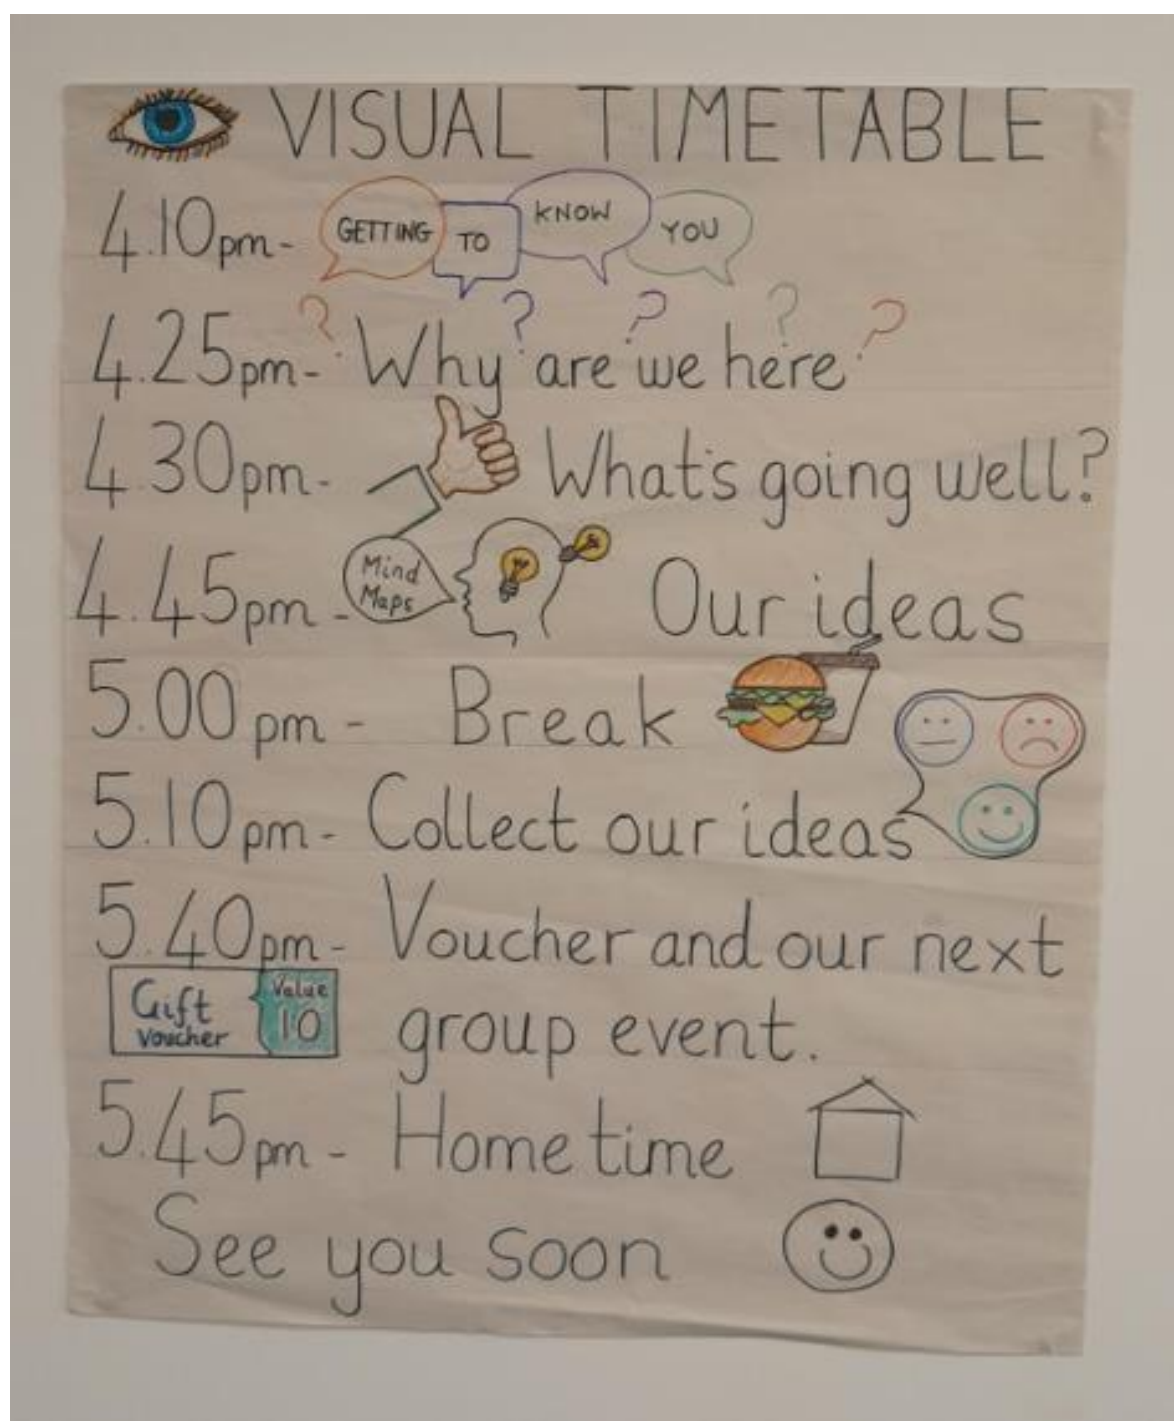 VISUAL TIMETABLE
4.10pm- GETTING TO KNOW YOU
? ? ? ? ?
4.25pm- Why are we here
4.30pm- What's going well?
4.45pm- Mind Maps Our ideas
5.00pm- Break
5.10pm- Collect our ideas
5.40pm- Voucher and our next
Gift Voucher Value 10 group event.
5.45pm- Home time
See you soon